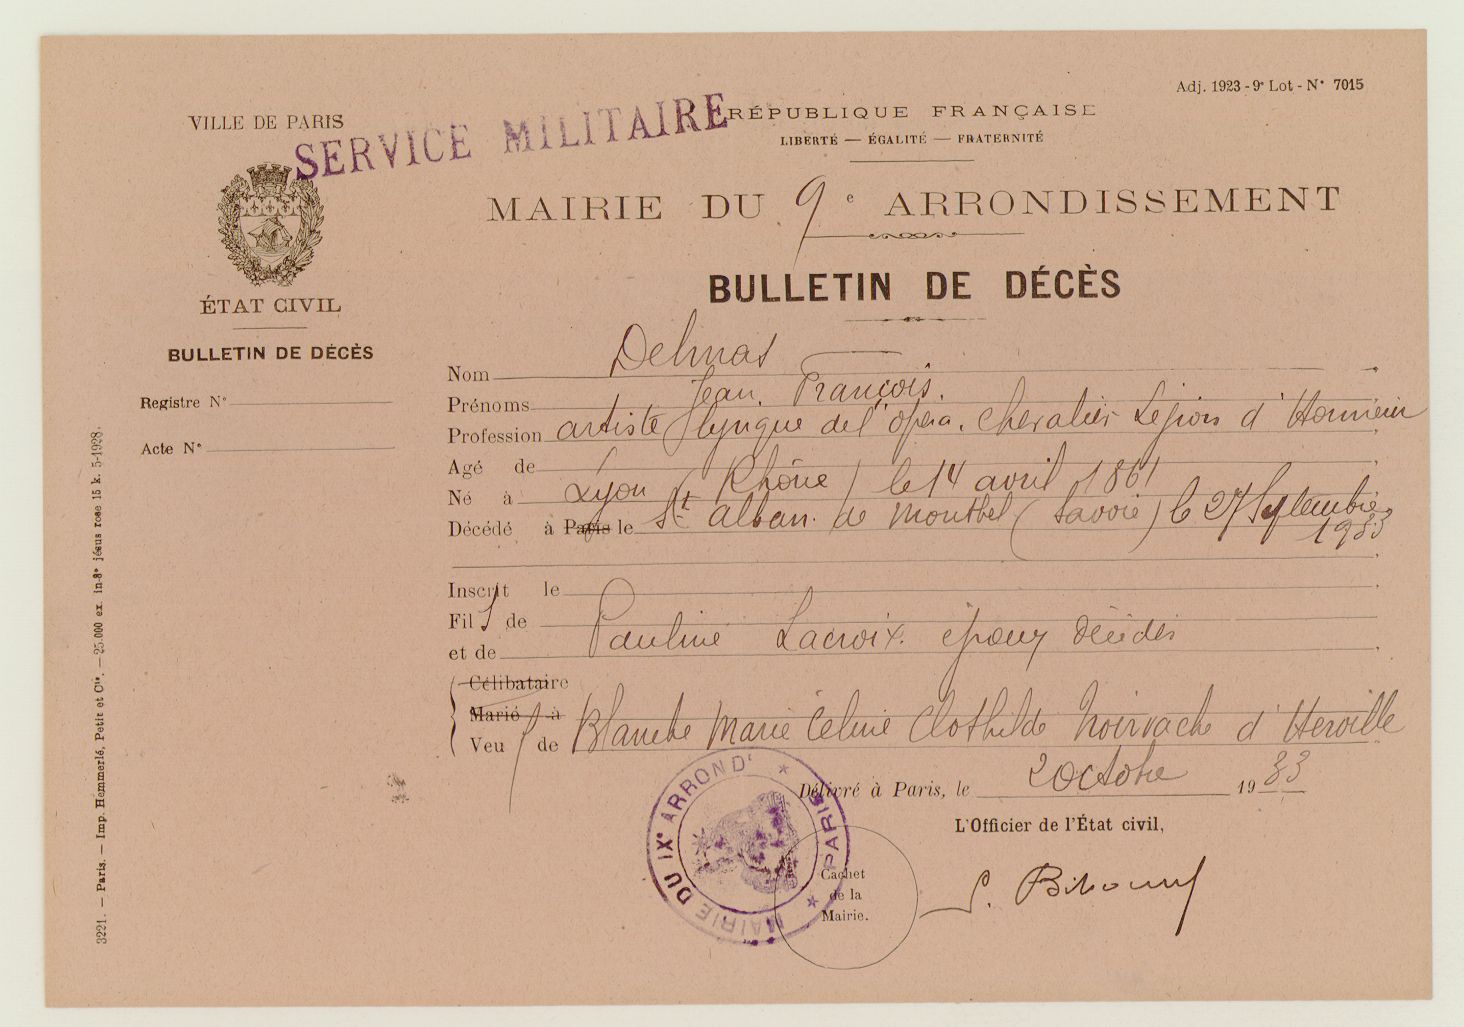 Adj. 1923 - 9e Lot - N° 7015
VILLE DE PARIS
SERVICE MILITAIRE
RÉPUBLIQUE FRANÇAISE
LIBERTÉ — ÉGALITÉ — FRATERNITÉ
MAIRIE DU 9e ARRONDISSEMENT
BULLETIN DE DÉCÈS
ÉTAT CIVIL
BULLETIN DE DÉCÈS
Registre N°
Acte N°
3221. — Paris. — Imp. Hemmerlé, Petit et Cie. — 25.000 ex. in-8° jésus rose 15 k. 5-1928.
Nom Delmas
Prénoms Jean, François.
Profession artiste lyrique de l'opéra. Chevalier Légion d'Honneur
Agé de
Né à Lyon (Rhône) le 14 avril 1861
Décédé à Paris le St alban de Montbel (Savoie) le 27 Septembre
1933
Inscrit le
Fils de
et de Pauline Lacroix. époux décédés
Célibataire
Marié à
Veuf de Blanche Marie Céline Clothilde d'Heroille
Délivré à Paris, le 2 octobre 1933
L'Officier de l'État civil,
MAIRIE DU IXe ARRONDt
PARIS
Cachet
de la
Mairie.